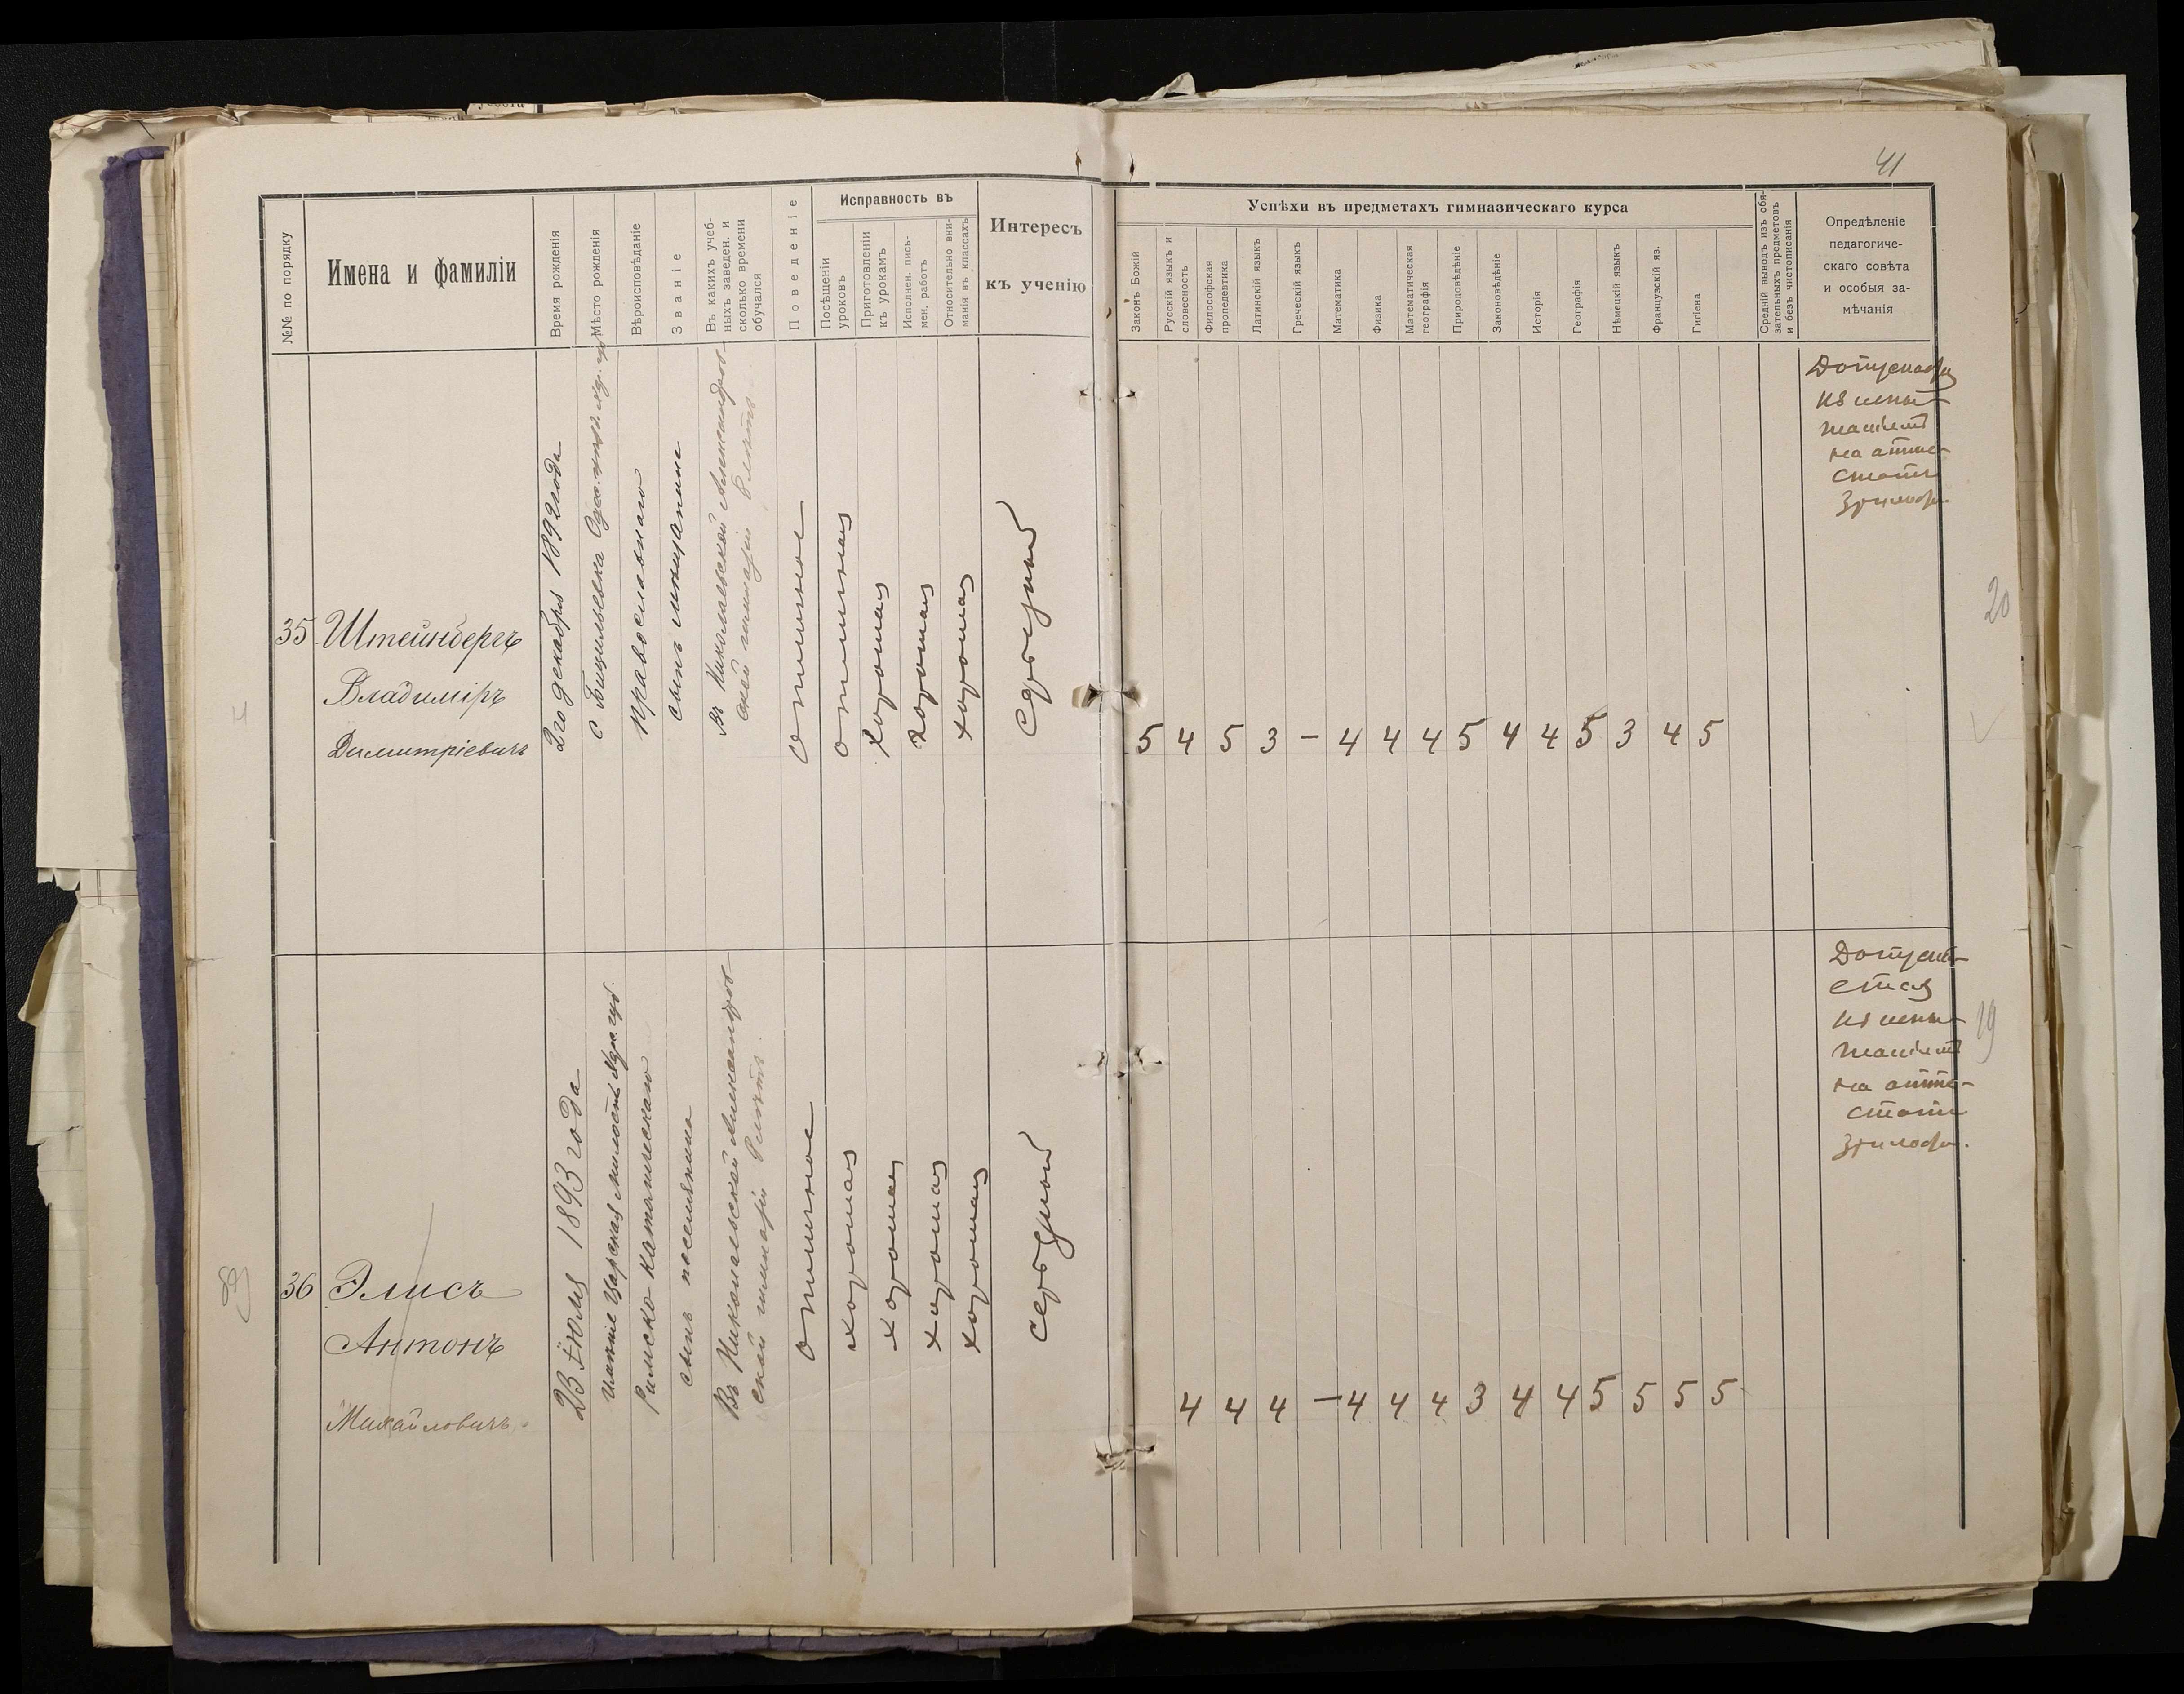 41
№№ по порядку
Имена и фамиліи
Время рожденія
Мѣсто рожденія
Вѣроисповѣданіе
Званіе
Въ какихъ учеб-
ныхъ заведен. и
сколько времени
обучался
Поведеніе
Исправность въ
Посѣщеніи
уроковъ
Приготовленіи
къ урокамъ
Исполнен. пись-
мен. работъ
Относительно вни-
манія въ классахъ
Интересъ
къ ученію
Успѣхи въ предметахъ гимназическаго курса
Законъ Божій
Русскій языкъ и
словесность
Философская
пропедевтика
Латинскій языкъ
Греческій языкъ
Математика
Физика
Математическая
географія
Природовѣдѣніе
Законовѣдѣніе
Исторія
Географія
Нѣмецкій языкъ
Французскій яз.
Гигіена
Средній выводъ изъ обя-
зательныхъ предметовъ
и безъ чистописанія
Опредѣленіе
педагогиче-
скаго совѣта
и особыя за-
мѣчанія
35
Штейнбергъ
Владиміръ
Димитріевичъ
2го декабря 1892 года
с
православнаго
сынъ мѣщанина
Въ Николаевской Александров-
ской гимназіи 8 лѣтъ
отличное
отличная
хорошая
хорошая
хорошая
5 4 5 3 – 4 4 4 5 4 4 5 3 4 5
къ испы-
таніямъ
на атте-
статъ
20
36
Элисъ
Антонъ
Михайловичъ
23 Іюля 1893 года
имѣніе Царская Милость
Римско-Католическаго
сынъ поселянина
Въ Николаевской Александров-
ской гимназіи 8 лѣтъ.
отличное
хорошая
хорошая
хорошая
хорошая
4 4 4 – 4 4 4 3 4 4 5 5 5 5
къ испы-
таніямъ
на атте-
статъ
19